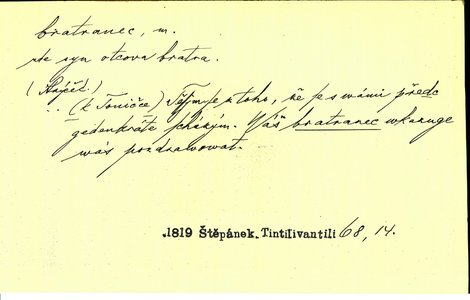 bratranec, m.
je syn otcova bratra.
(Rejčk.)
.. (k Toničce) Těšjm se z toho, že se s wámi předc
gedenkráte scházým. Wáš bratranec wkazuge
wás pozdrawowat.
.1819 Štěpánek. Tintilivantili 68, 14.